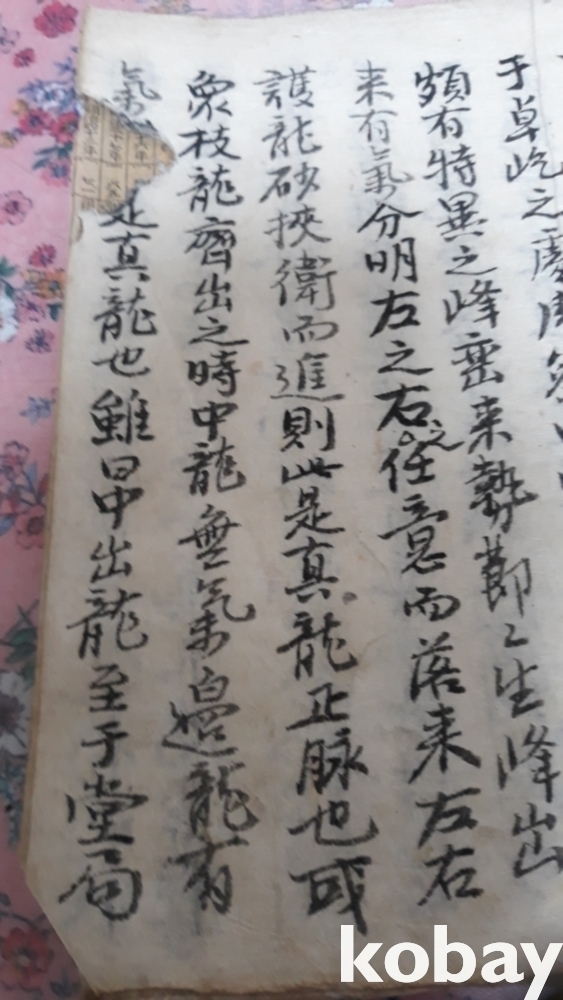 于卓屹之處
頗有特異之峰巒来勢節〻生峰出
来有氣分明左之右之任意而落来左右
護龍砂挾衛而進則此是真龍正脉也或
衆枝龍齊出之時中龍無氣邊龍有
氣是真龍也雖曰中出龍至于堂局
kobay